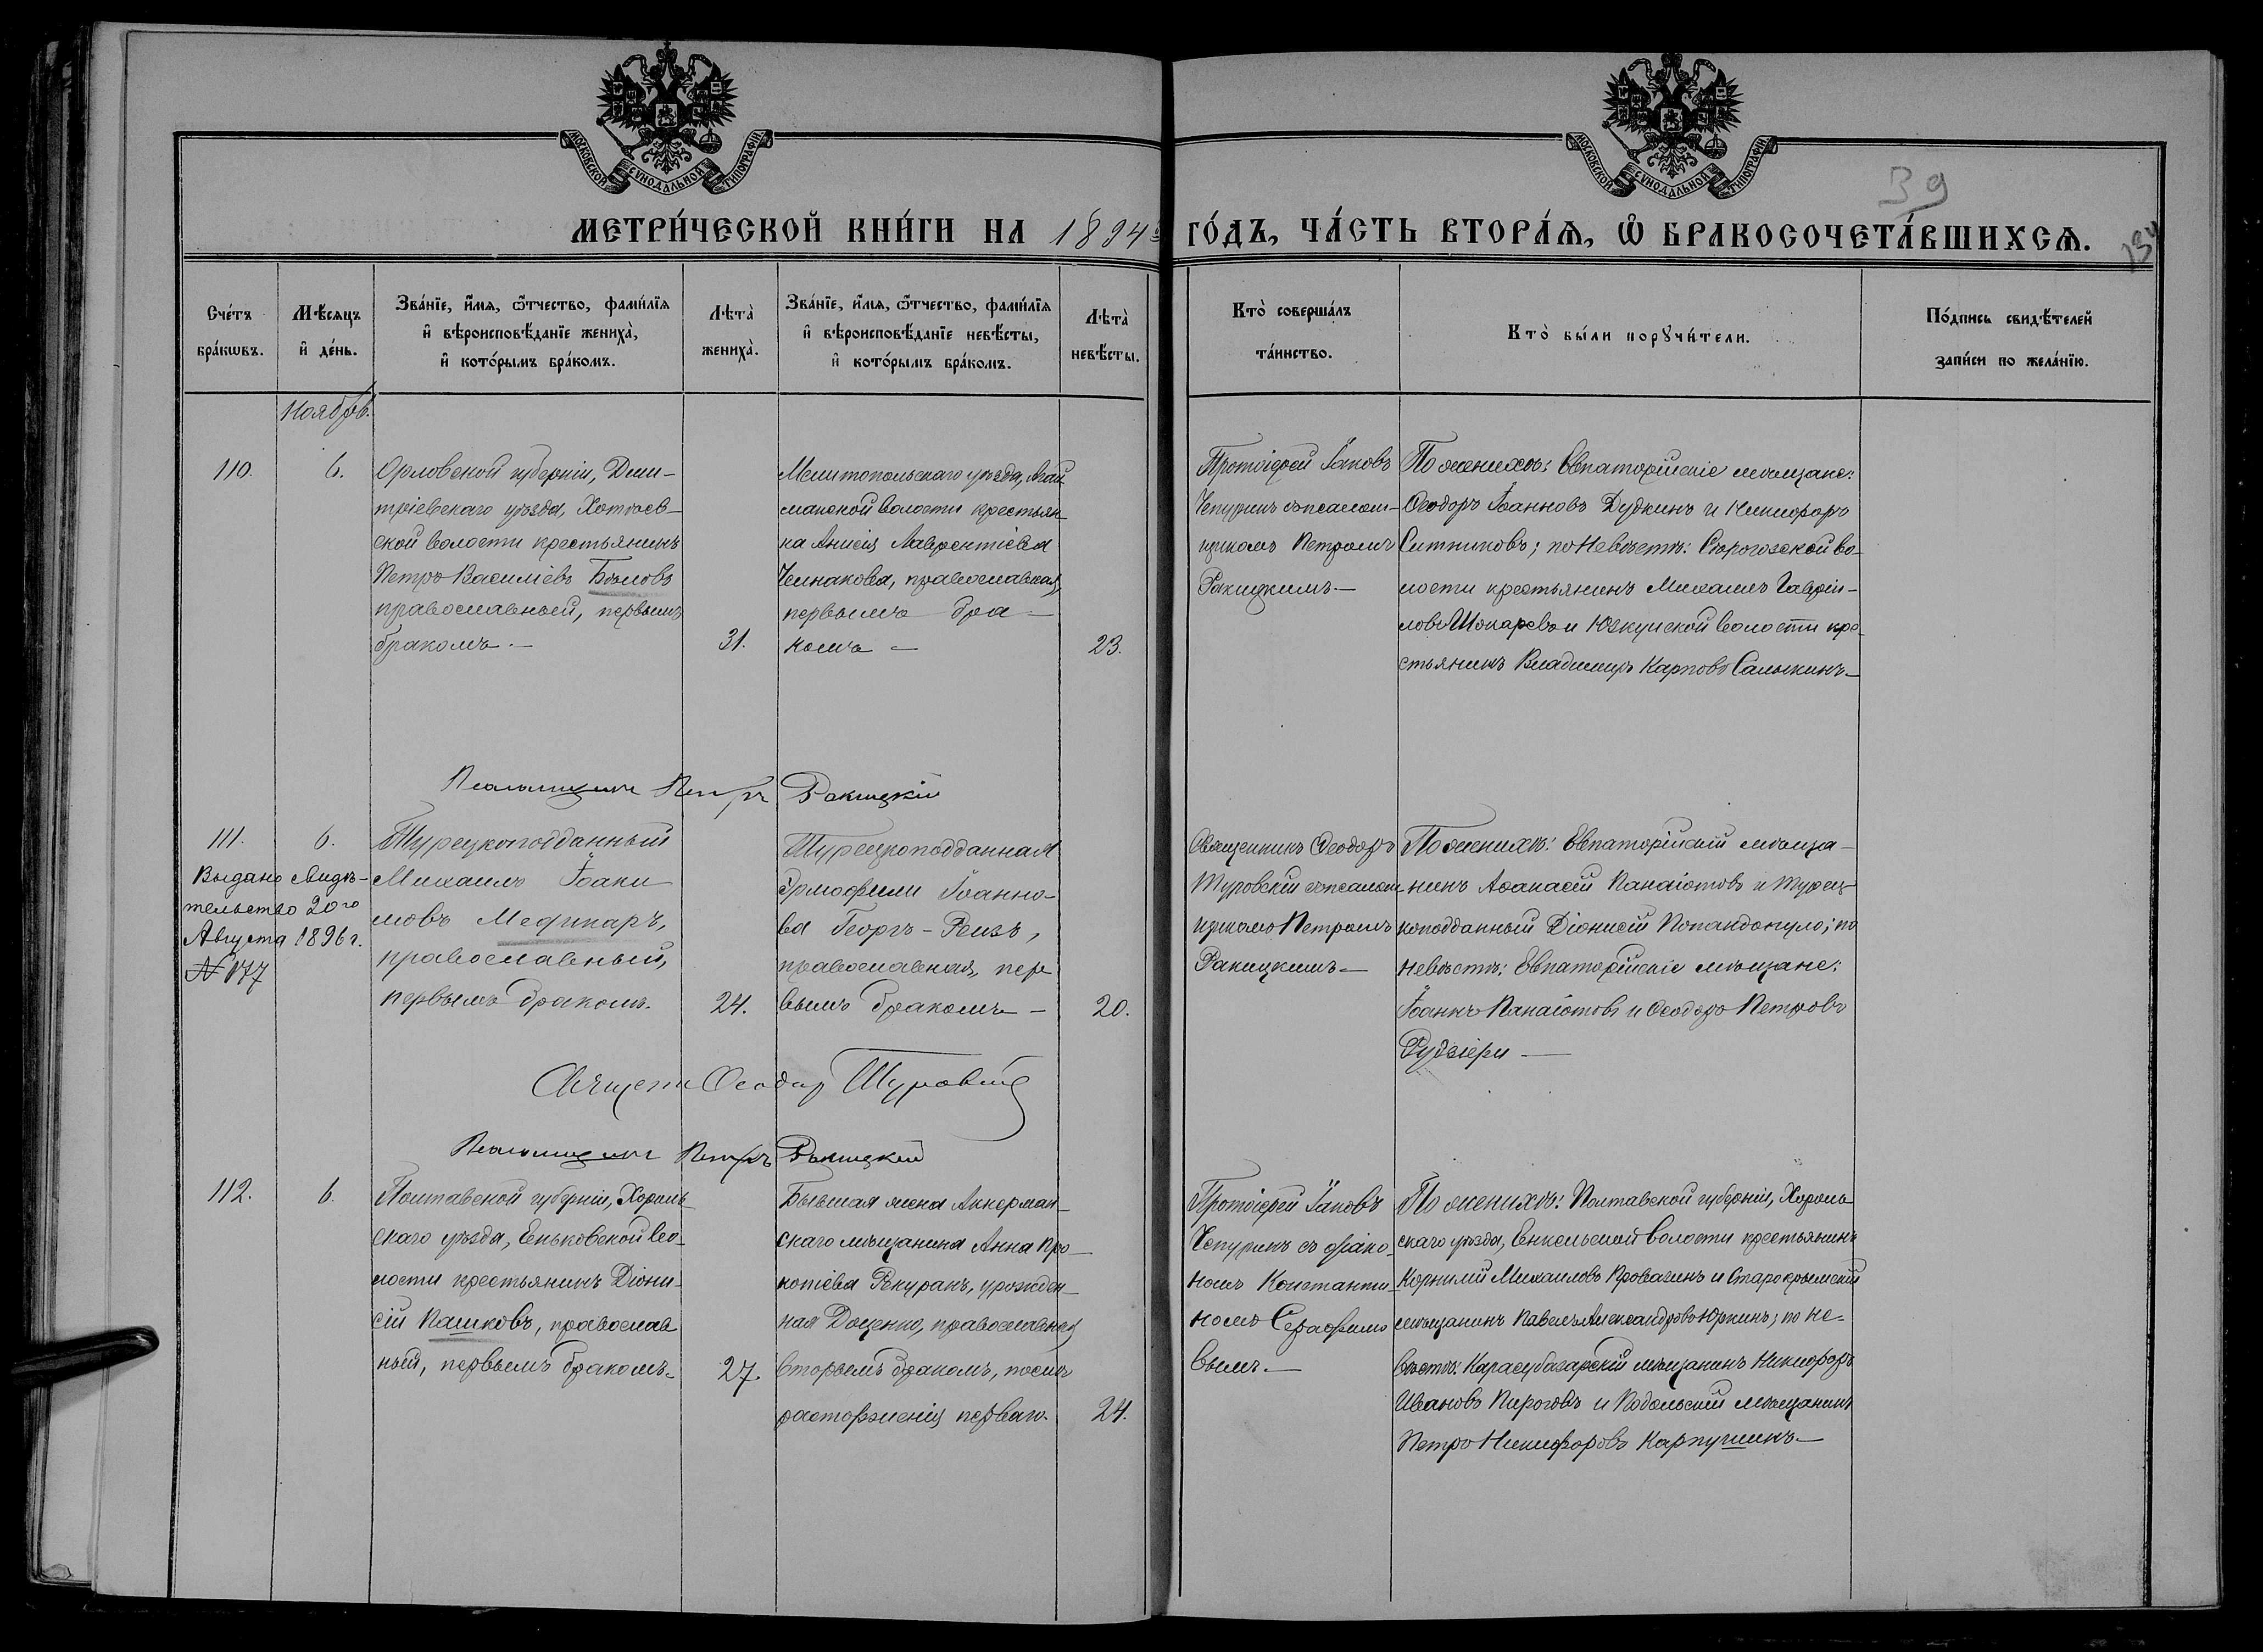 МОСКОВСКОЙ СѴНОДАЛЬНОЙ ТИПОГРАФІИ
МОСКОВСКОЙ СѴНОДАЛЬНОЙ ТИПОГРАФІИ
39
МЕТРИ́ЧЕСКОЙ КНИ́ГИ НА 1894й ГО́ДЪ, ЧА́СТЬ ВТОРА́Ѧ, Ѡ҆ БРАКОСОЧЕТА́ВШИХСѦ.
134
Сче́тъ бра́кѡвъ.
Мѣ́сѧцъ и҆ де́нь.
Зва́нїе, и҆́мѧ, ѻ҆́тчество, фами́лїѧ
и҆ вѣроисповѣ́данїе жениха̀,
и҆ кото́рымъ бра́комъ.
Лѣта̀ жениха̀.
Зва́нїе, и҆́мѧ, ѻ҆́тчество, фами́лїѧ
и҆ вѣроисповѣ́данїе невѣ́сты,
и҆ кото́рымъ бра́комъ.
Лѣта̀ невѣ́сты.
Кто̀ соверша́лъ
та́инство.
Кто̀ бы́ли порꙋчи́тели.
По́дпись свидѣ́телей
за́писи по жела́нїю.
Ноябрь.
110.
6.
Орловской губерніи, Дми-
тріевскаго уѣзда, Хотѣев-
ской волости крестьянинъ
Петръ Василіевъ Бѣловъ
православный, первымъ
бракомъ.—
31.
Мелитопольскаго уѣзда, Агай-
манской волости крестьян-
ка Анисія Лаврентіева
Чемнакова, православная,
первымъ бра-
комъ —
23.
Протоіерей Іаковъ
Чепуринъ съ псалом-
щикомъ Петромъ
Ракицкимъ.—
По женихѣ: Евпаторійскіе мѣщане:
Ѳеодоръ Іоанновъ Дудкинъ и Никифоръ
Ситниковъ; по невѣстѣ: Сѣрогозской во-
лости крестьянинъ Михаилъ Гавріи-
ловъ Шопаревъ и Юзкуйской волости кре-
стьянинъ Владиміръ Карповъ Салыкинъ—
Псаломщикъ Петръ Ракицкій
111.
6.
Выдано свидѣ-
тельство 20го
Августа 1896 г.
№ 177
Турецкоподданный
Михаилъ Іоаки-
мовъ Мефикаръ,
православный,
первымъ бракомъ.
24.
Турецкоподданная
Ермофили Іоанно-
ва Георгъ-Реизъ,
православная, пер-
вымъ бракомъ —
20.
Священникъ Ѳеодоръ
Туровскій съ псалом-
щикомъ Петромъ
Ракицкимъ—
По женихѣ: Евпаторійскій мѣща-
нинъ Аѳанасій Панаіотовъ и турец-
коподданный Діонисій Попандопуло; по
невѣстѣ: Евпаторійскіе мѣщане:
Іоаннъ Панаіотовъ и Ѳеодоръ Петровъ
Рудзіери —
Священн. Ѳеодоръ Туровскій
Псаломщикъ Петръ Ракицкій
112.
6.
Полтавской губерніи, Хороль-
скаго уѣзда, Еньковской во-
лости крестьянинъ Діони-
сій Пашковъ, православ-
ный, первымъ бракомъ.
27.
Бывшая жена Аккерман-
скаго мѣщанина Анна Про-
копіева Рекуракъ, урожден-
ная Доценко, православная
вторымъ бракомъ, послѣ
расторженія перваго.
24.
Протоіерей Іаковъ
Чепуринъ съ діако-
номъ Константи-
номъ Серафимо-
вымъ.—
По женихѣ: Полтавской губерніи, Хороль-
скаго уѣзда, Енковской волости крестьянинъ
Корнилій Михаиловъ Провагинъ и Старокрымскій
мѣщанинъ Павелъ Александровъ Юркинъ; по не-
вѣстѣ: Карасубазарскій мѣщанинъ Никифоръ
Ивановъ Пироговъ и Подольскій мѣщанинъ
Петръ Никифоровъ Карпушинъ—